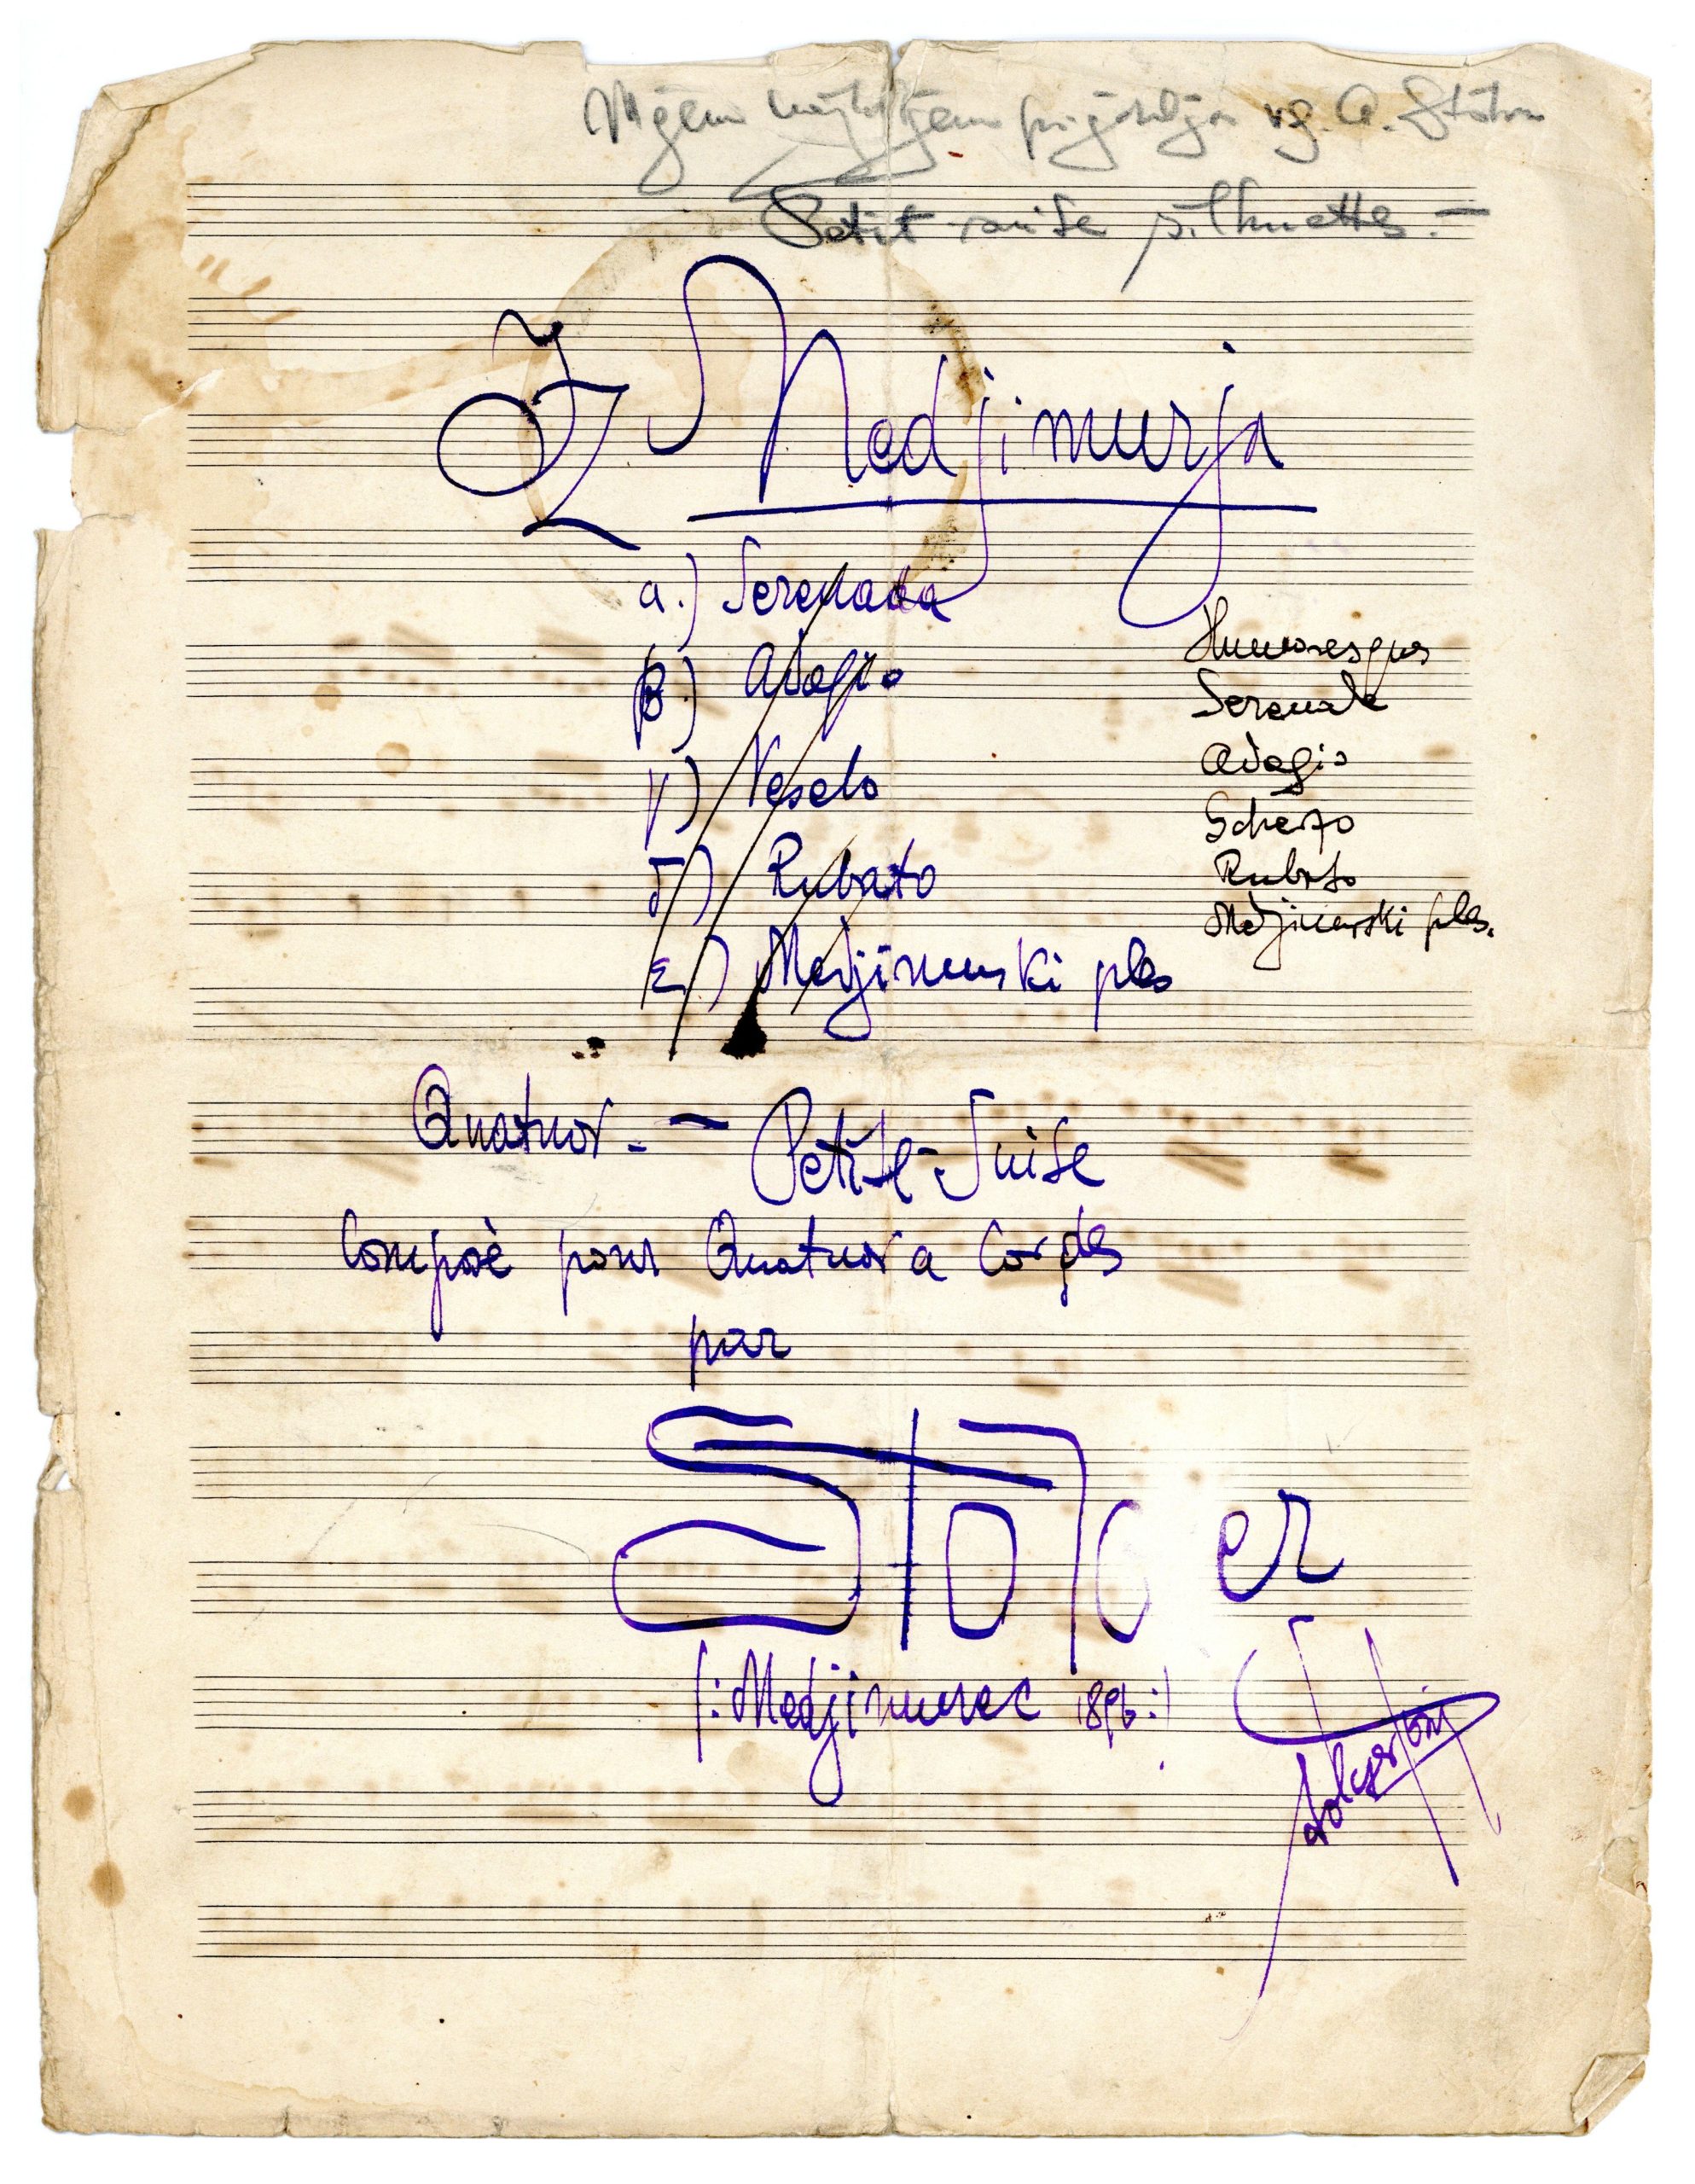 vg. A. Stöhr
Petit suite silhuettes. —
Iz Medjimurja
a.) Serenada
β.) Adagio
γ) Veselo
δ) Rubato
ε) Medjimurski ples
Humoresque
Serenade
Adagio
Scherzo
Rubato
Medjimurski ples.
Quatuor. — Petite-Suite
Composè pour Quatuor a Cordes
par
Stolcer
(: Medjimurec 1896 :)